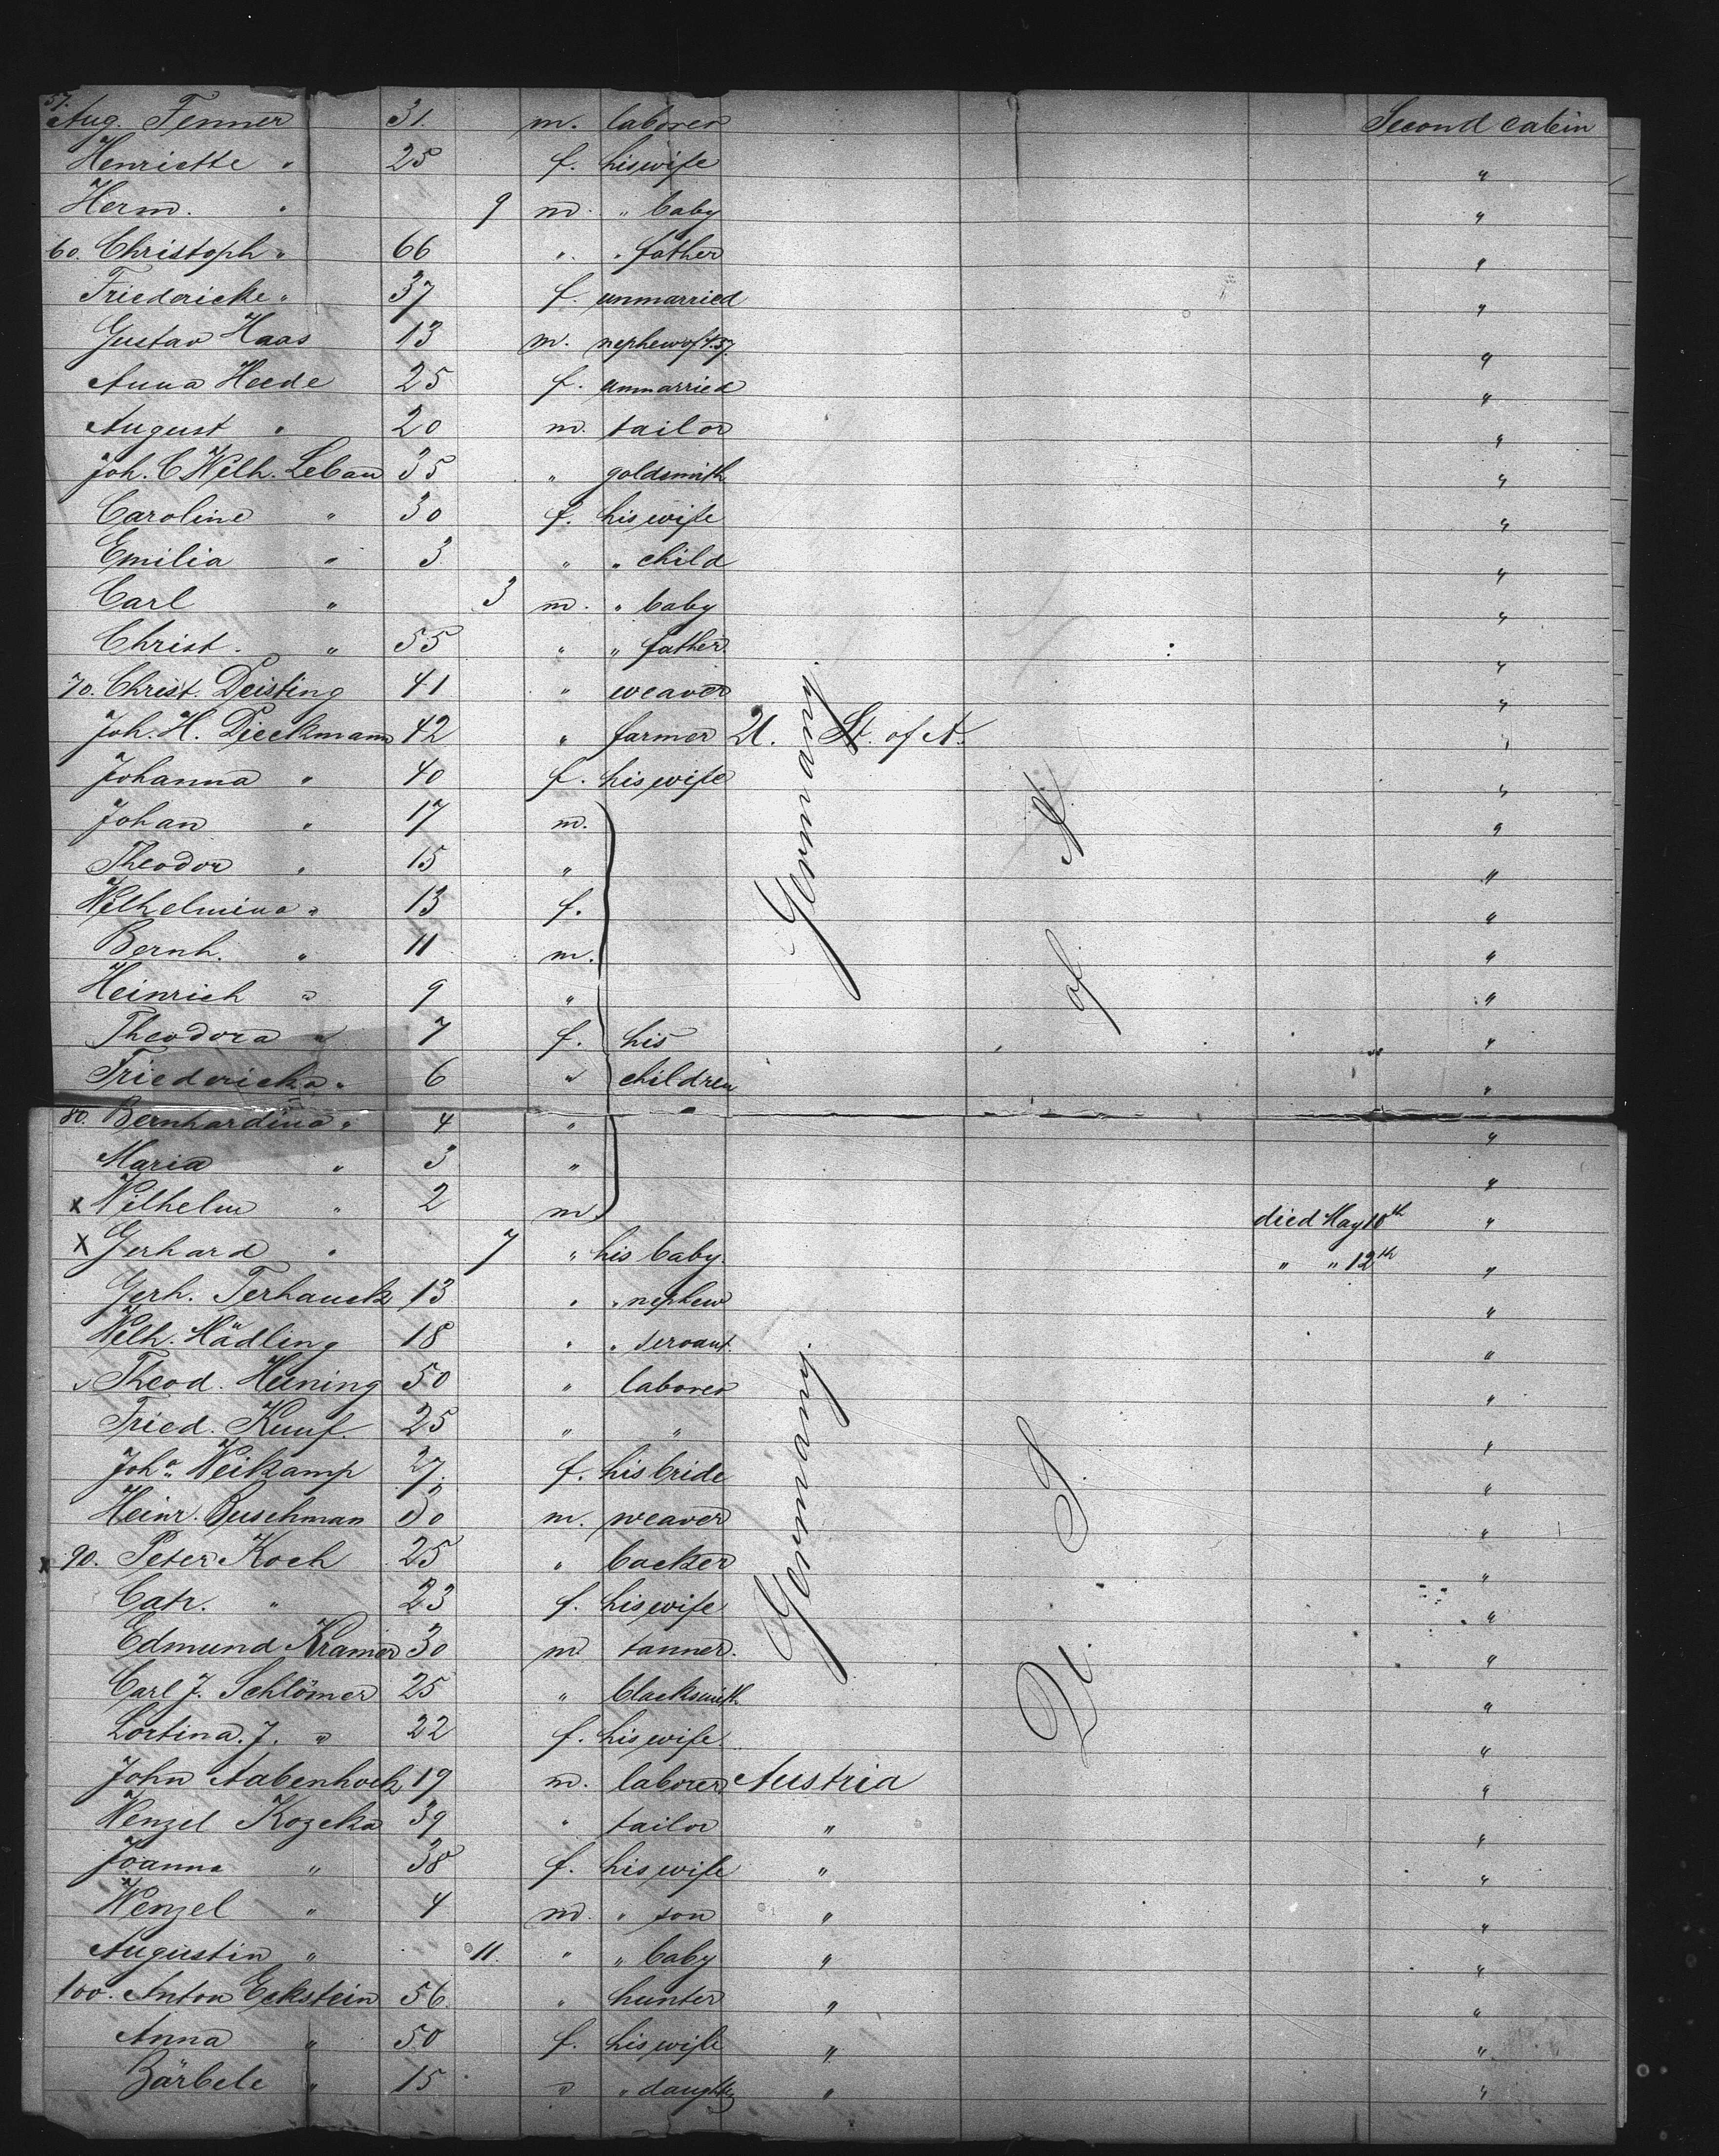 57. Aug. Fenner 31. m. laborer Second cabin
Henriette " 25 f. his wife "
Herm. " 9 m. " baby "
60. Christoph " 66 " " father "
Friedericke " 37 f. unmarried "
Gustav Haas 13 m. nephew of f. 57. "
Anna Heede 25 f. unmarried "
August " 20 m. tailor "
Joh. C Wilh. Lebau 35 " goldsmith "
Caroline " 30 f. his wife "
Emilia " 3 " " child "
Carl " 3 m. " baby "
Christ. " 55 " " father "
70. Christ. Deisting 41 " weaver "
Joh. H. Dieckmann 42 " farmer U. St. of A. "
Johanna " 40 f. his wife "
Johan " 17 m. "
Theodor " 15 " "
Wilhelmina " 13 f. "
Bernh. " 11 m. "
Heinrich " 9 " "
Theodora " 7 f. his "
Friedericka " 6 " children "
80. Bernhardina " 4 " "
Maria " 3 " "
x Wilhelm " 2 m. died May 10th "
x Gerhard " 7 " his baby. " " 12th "
Gerh. Terhauck 13 " " nephew "
Wilh. Mädling 18 " " servant. "
Theod. Heining 50 " laborer "
Fried. Kunf. 25 " " "
Joha. Weikamp 27. f. his bride "
Heinr. Buschman 30 m. weaver "
x 90. Peter Koch 25 " backer "
Catr. " 23 f. his wife "
Edmund Kramer 30 m. tanner. "
Carl J. Schlömer 25 " blacksmith "
Lortina. J. " 22 f. his wife. "
John Aabenhoch 19 m. laborer Austria "
Wenzel Kozeka 39 " tailor " "
Joanna " 38 f. his wife " "
Wenzel " 4 m. " son " "
Augustin " 11. " " baby " "
100. Anton Eckstein 56. " hunter " "
Anna " 50 f. his wife " "
Bärbele " 15 " " daughter " "
Germany.
Germany.
of A.
S.